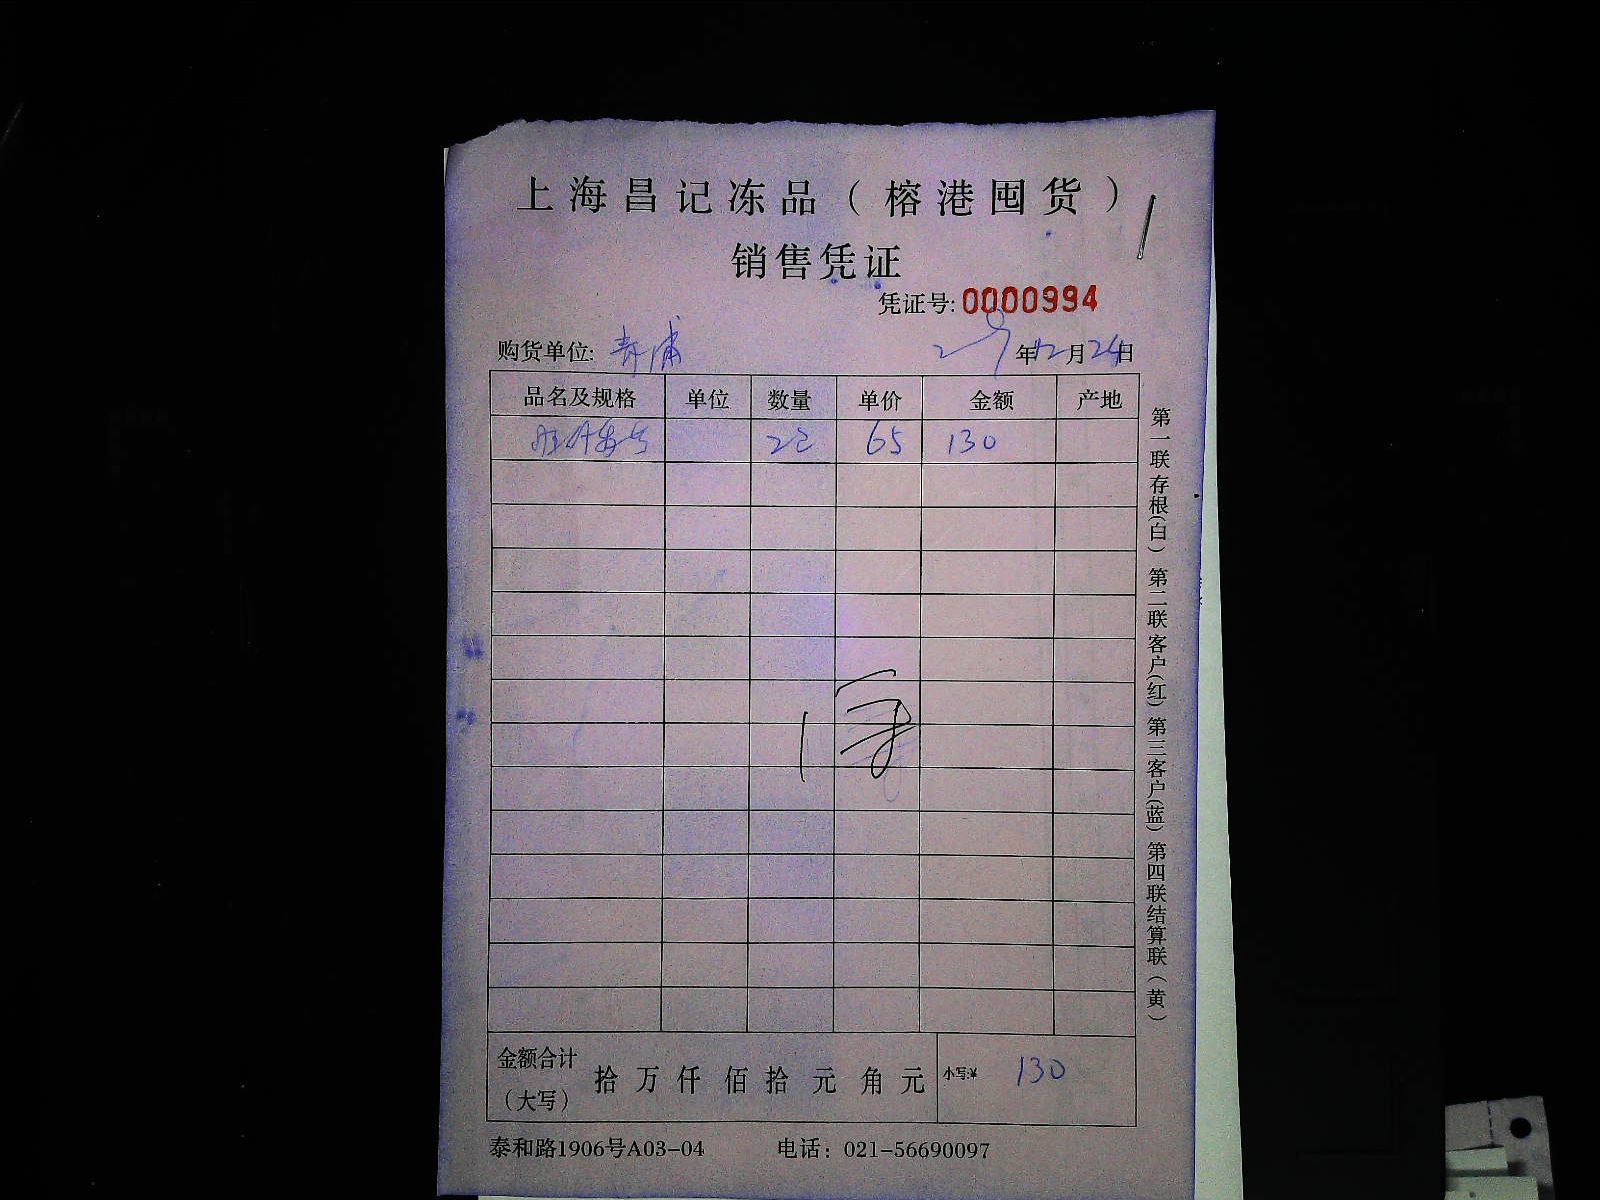 上海昌记冻品（榕港囤货）
销售凭证
凭证号: 0000994
购货单位: 青浦 年12月24日
品名及规格 单位 数量 单价 金额 产地
65 130
金额合计（大写） 拾 万 仟 佰 拾 元 角 元 小写:¥ 130
泰和路1906号A03-04 电话：021-56690097
第一联存根(白) 第二联客户(红) 第三客户(蓝) 第四联结算联(黄)